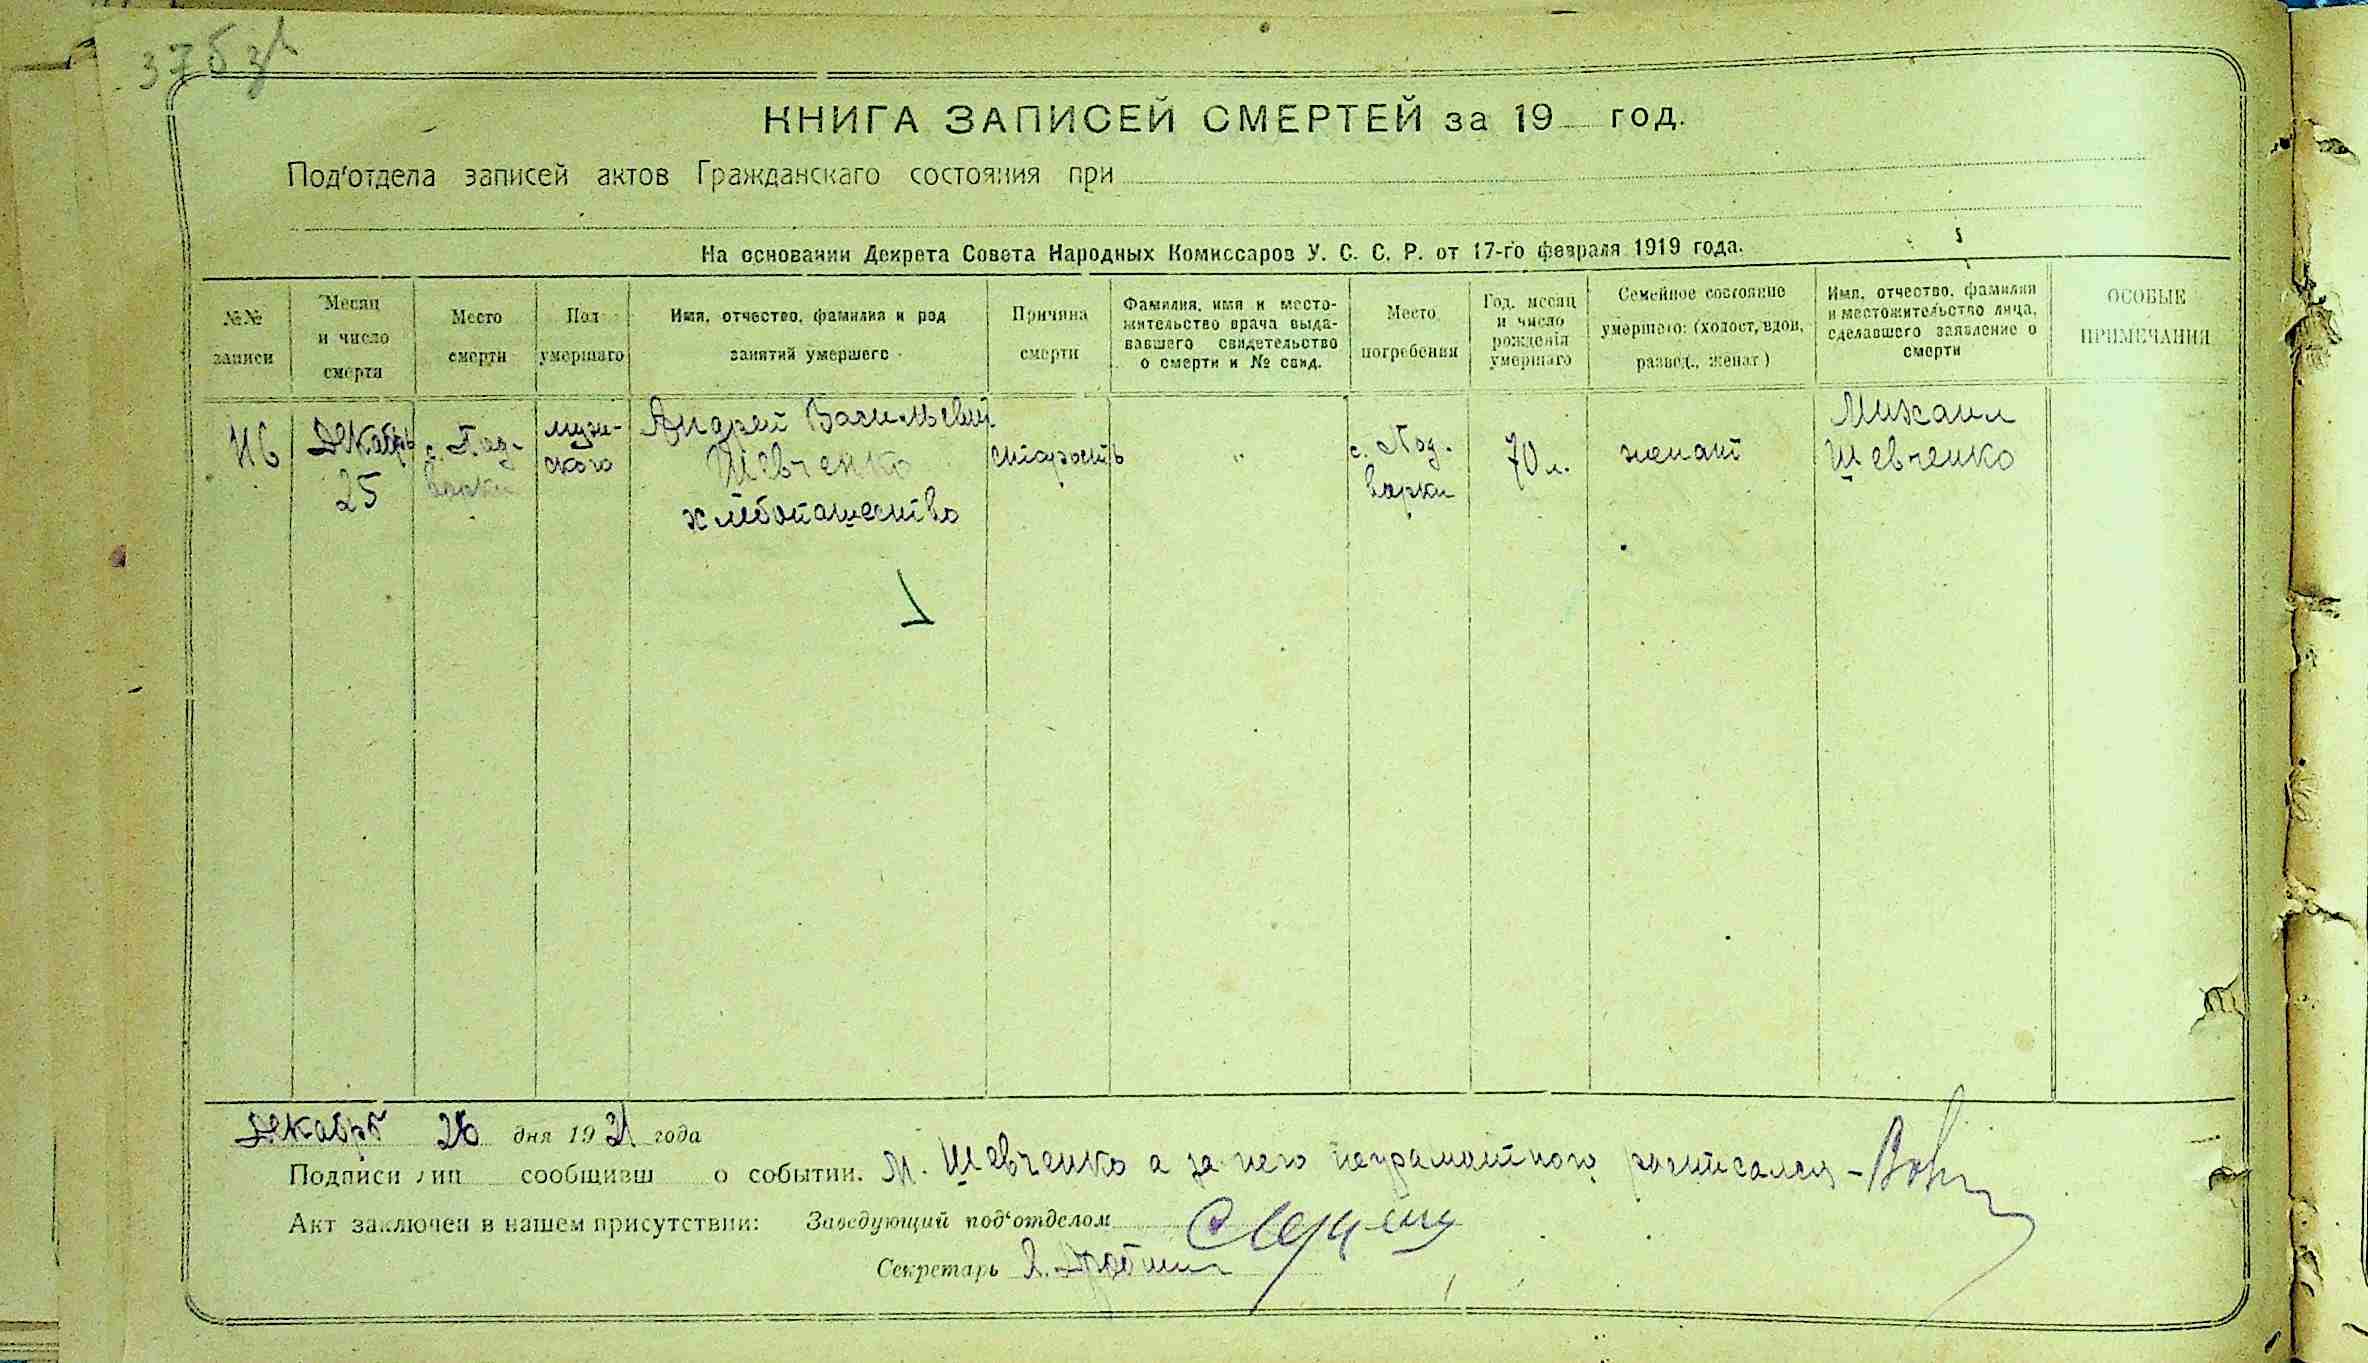 КНИГА ЗАПИСЕЙ СМЕРТЕЙ за 19 год.
Под'отдела записей актов Гражданскаго состояния при
На основании Декрета Совета Народных Комиссаров У. С. С. Р. от 17-го февраля 1919 года.
№№ записи
Месяц и число смерти
Место смерти
Пол умершаго
Имя, отчество, фамилия и род занятий умершего
Причина смерти
Фамилия, имя и место-
жительство врача выда-
вавшего свидетельство
о смерти и № свид.
Место погребения
Год, месяц
и число
рождения
умершаго
Семейное состояние
умершего: (холост, вдов,
развед., женат)
Имя, отчество, фамилия
и местожительство лица,
сделавшего заявление о
смерти
ОСОБЫЕ
ПРИМЕЧАНИЯ
116
Декабрь
25
с. Под-
варки
мужи-
ского
Андрей Васильевич
Шевченко
хлебопашество
старость
"
с. Под-
варки
70 л.
женат
Михаил
Шевченко
Декабрь 26 дня 1921 года
Подписи лиц сообщивш о событии. М. Шевченко а за него неграмотного росписался -
Акт заключен в нашем присутствии: Заведующий под'отделом
Секретарь